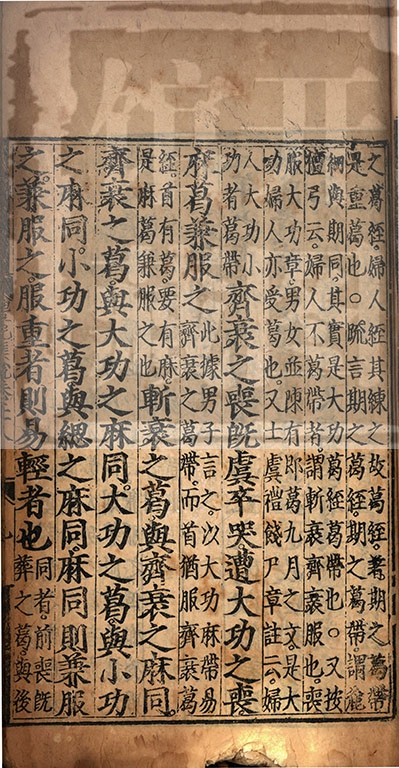 之葛絰婦人絰其練之故葛絰著期之葛帶
是重葛也。疏言期之葛絰期之葛帶謂麤
細與期同。其實是大功葛絰葛帶也。又按
檀弓云。婦人不葛帶者謂斬衰齊衰服也。喪
服大功章。男女並陳有即葛九月之文。是大
功婦人亦受葛也。又士虞禮餞尸章註云。婦
人大功小
功者葛帶
齊衰之喪既虞卒哭遭大功之喪
麻葛兼服之
此據男子言之。以大功麻帶易
齊衰之葛帶。而首猶服齊衰葛
絰首有葛。要有麻。
是麻葛兼服之也
斬衰之葛與齊衰之麻同。
齊衰之葛。與大功之麻同。大功之葛。與小功
之麻同。小功之葛。與緦之麻同。麻同則兼服
之。兼服之服重者則易輕者也
同者。前喪既
葬之葛。與後